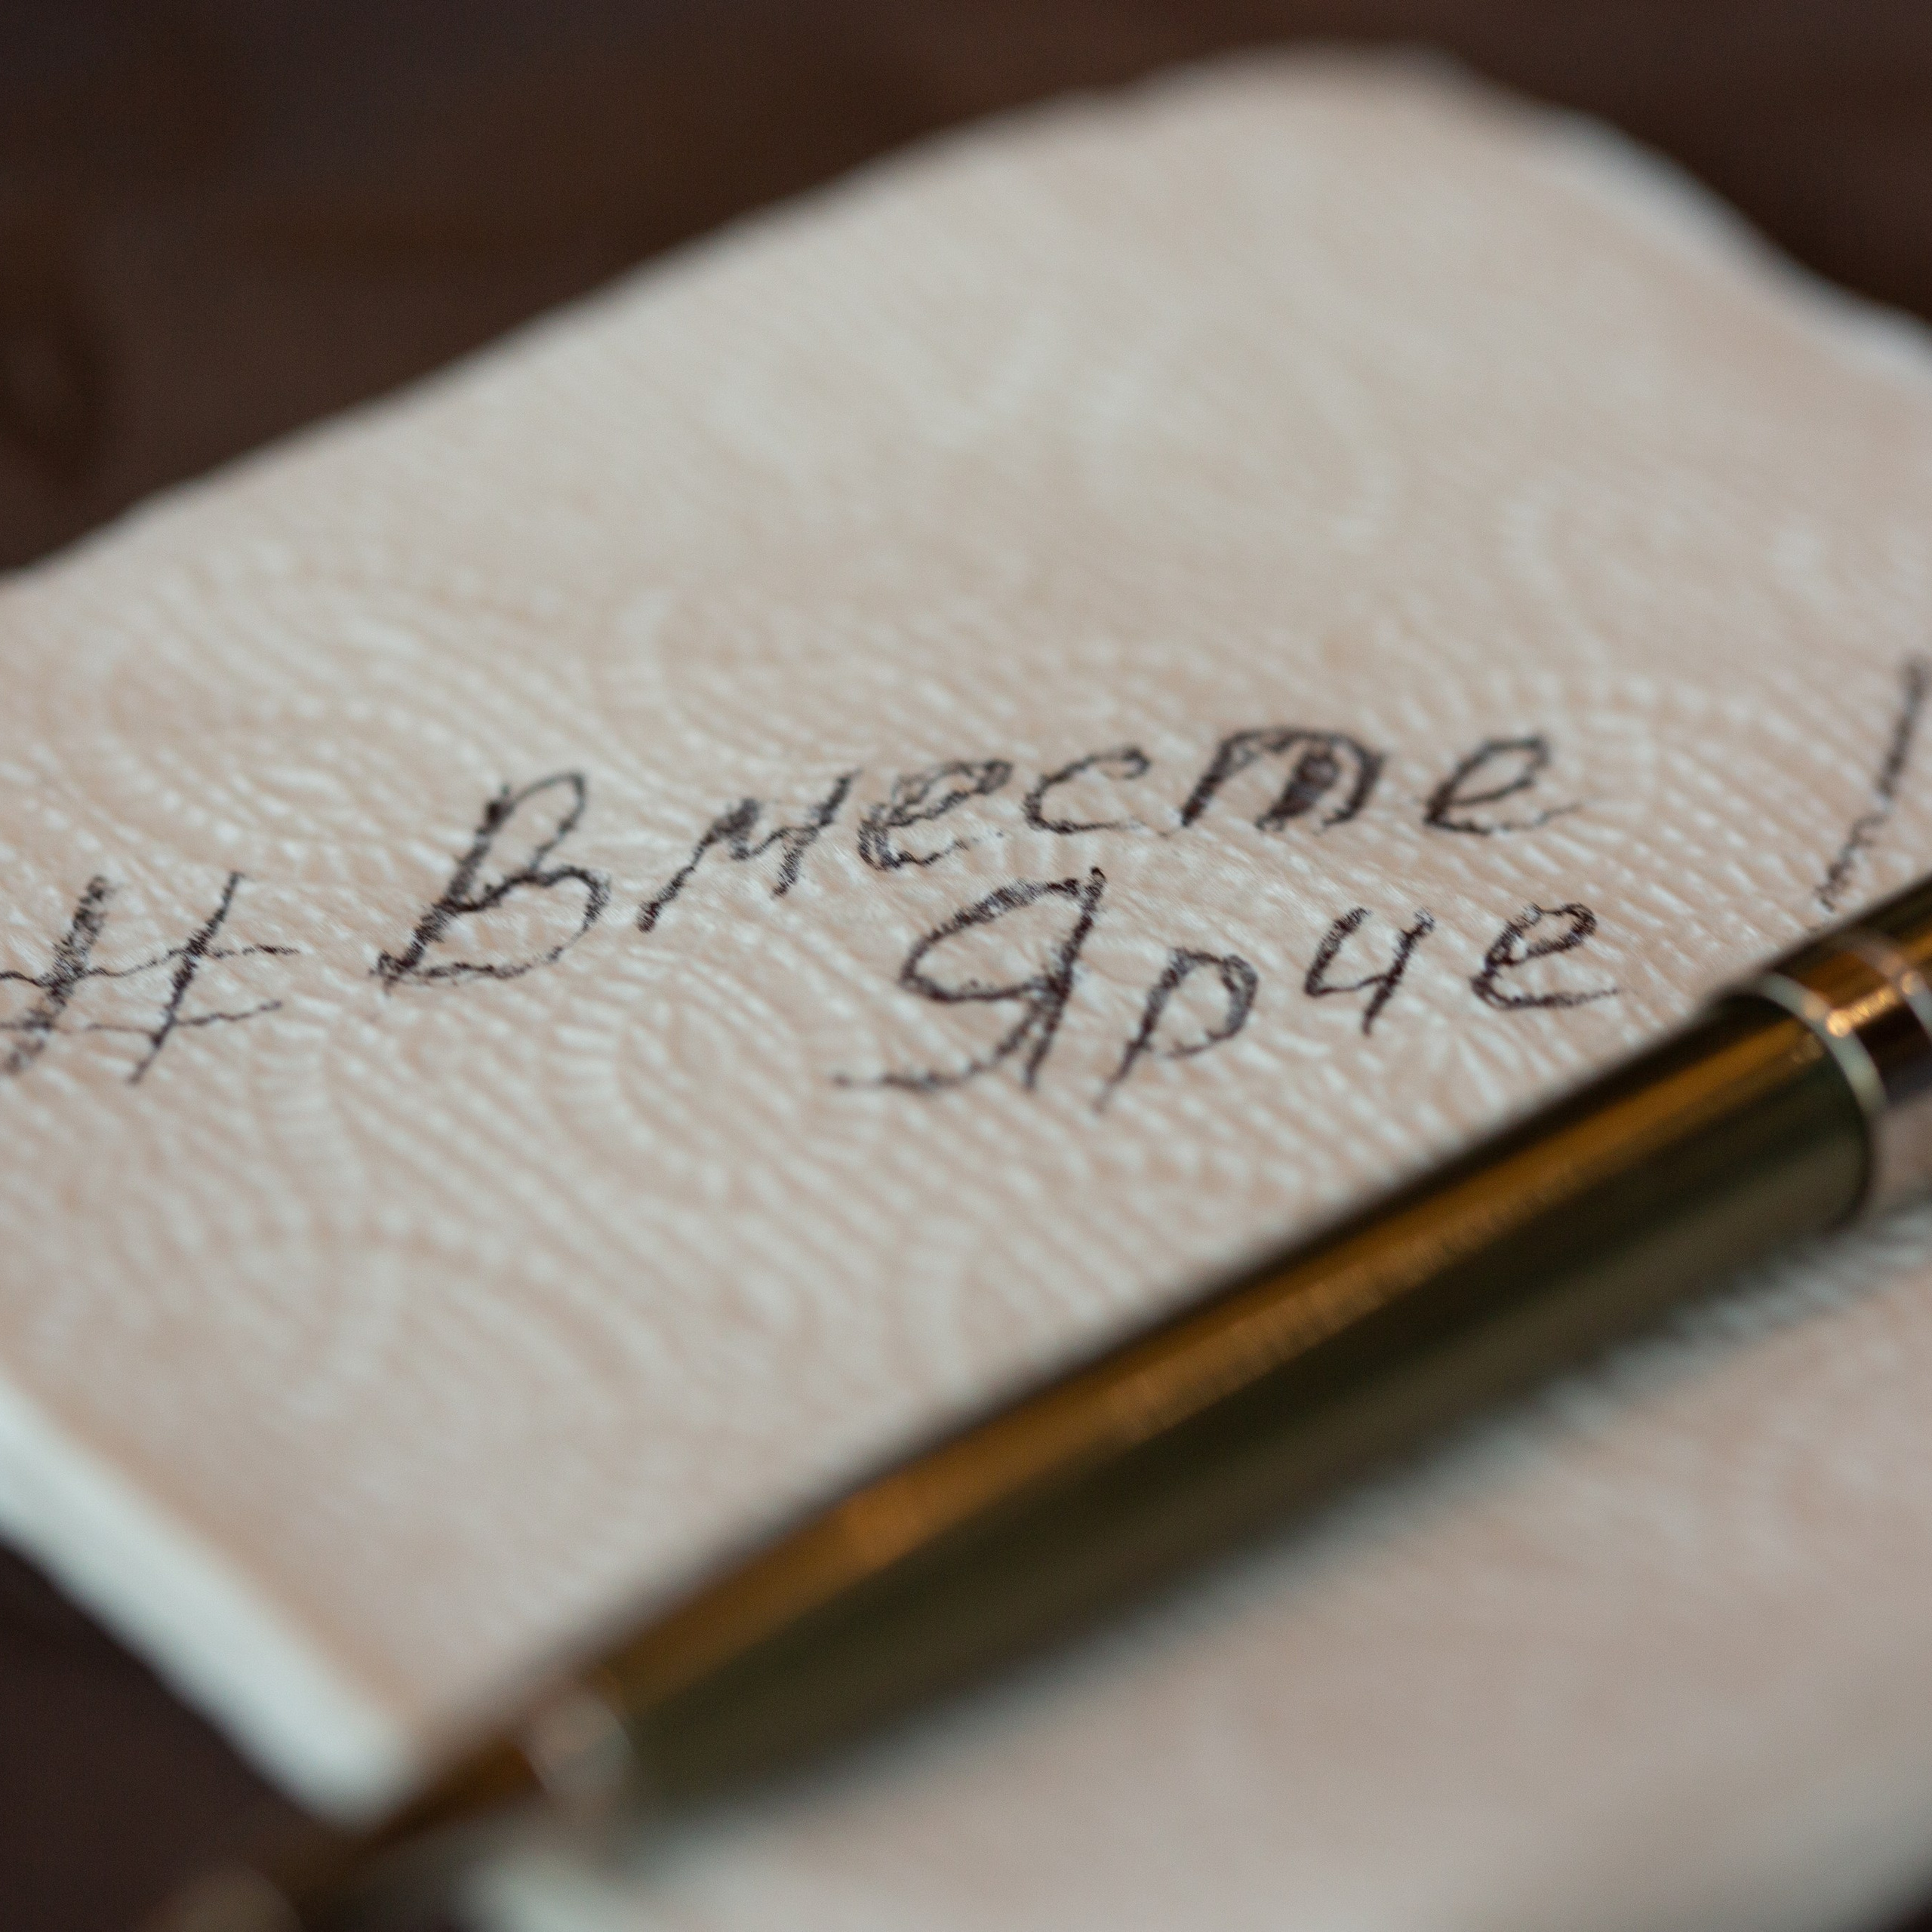 # Вместе
Ярче!